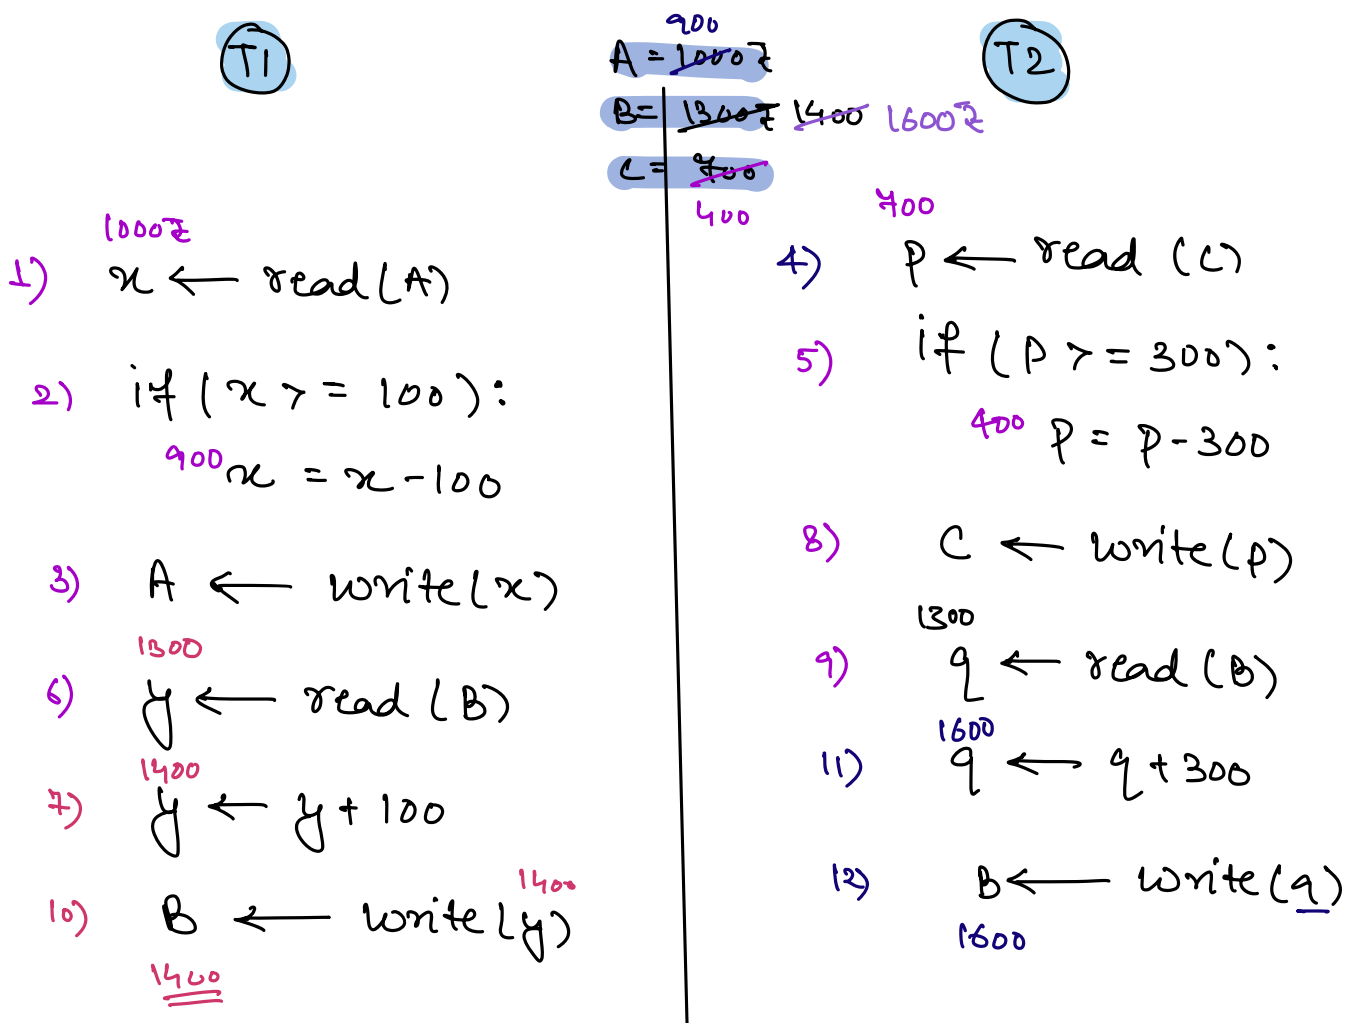 T1
900
A = 1000₹
T2
B = 1300₹ 1400 1600₹
C = 700
400
1000₹
1) x ← read(A)
2) if (x >= 100):
900 x = x - 100
3) A ← write(x)
1300
6) y ← read(B)
1400
7) y ← y + 100
1400
10) B ← write(y)
1400
700
4) p ← read(C)
5) if (p >= 300):
400 p = p - 300
8) C ← write(p)
1300
9) q ← read(B)
1600
11) q ← q + 300
12) B ← write(q)
1600